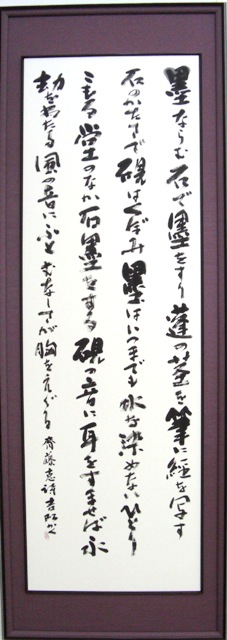 墨ならむ石で墨をすり蓬の茎を筆に経を写す
石のかたさで硯はくぼみ墨はいつまでも水を染めないひとり
こもる堂のなか石墨をする硯の音に耳をすませば永
劫をわたる風の音にふとむなしさが胸をえぐる 齊藤恵詩